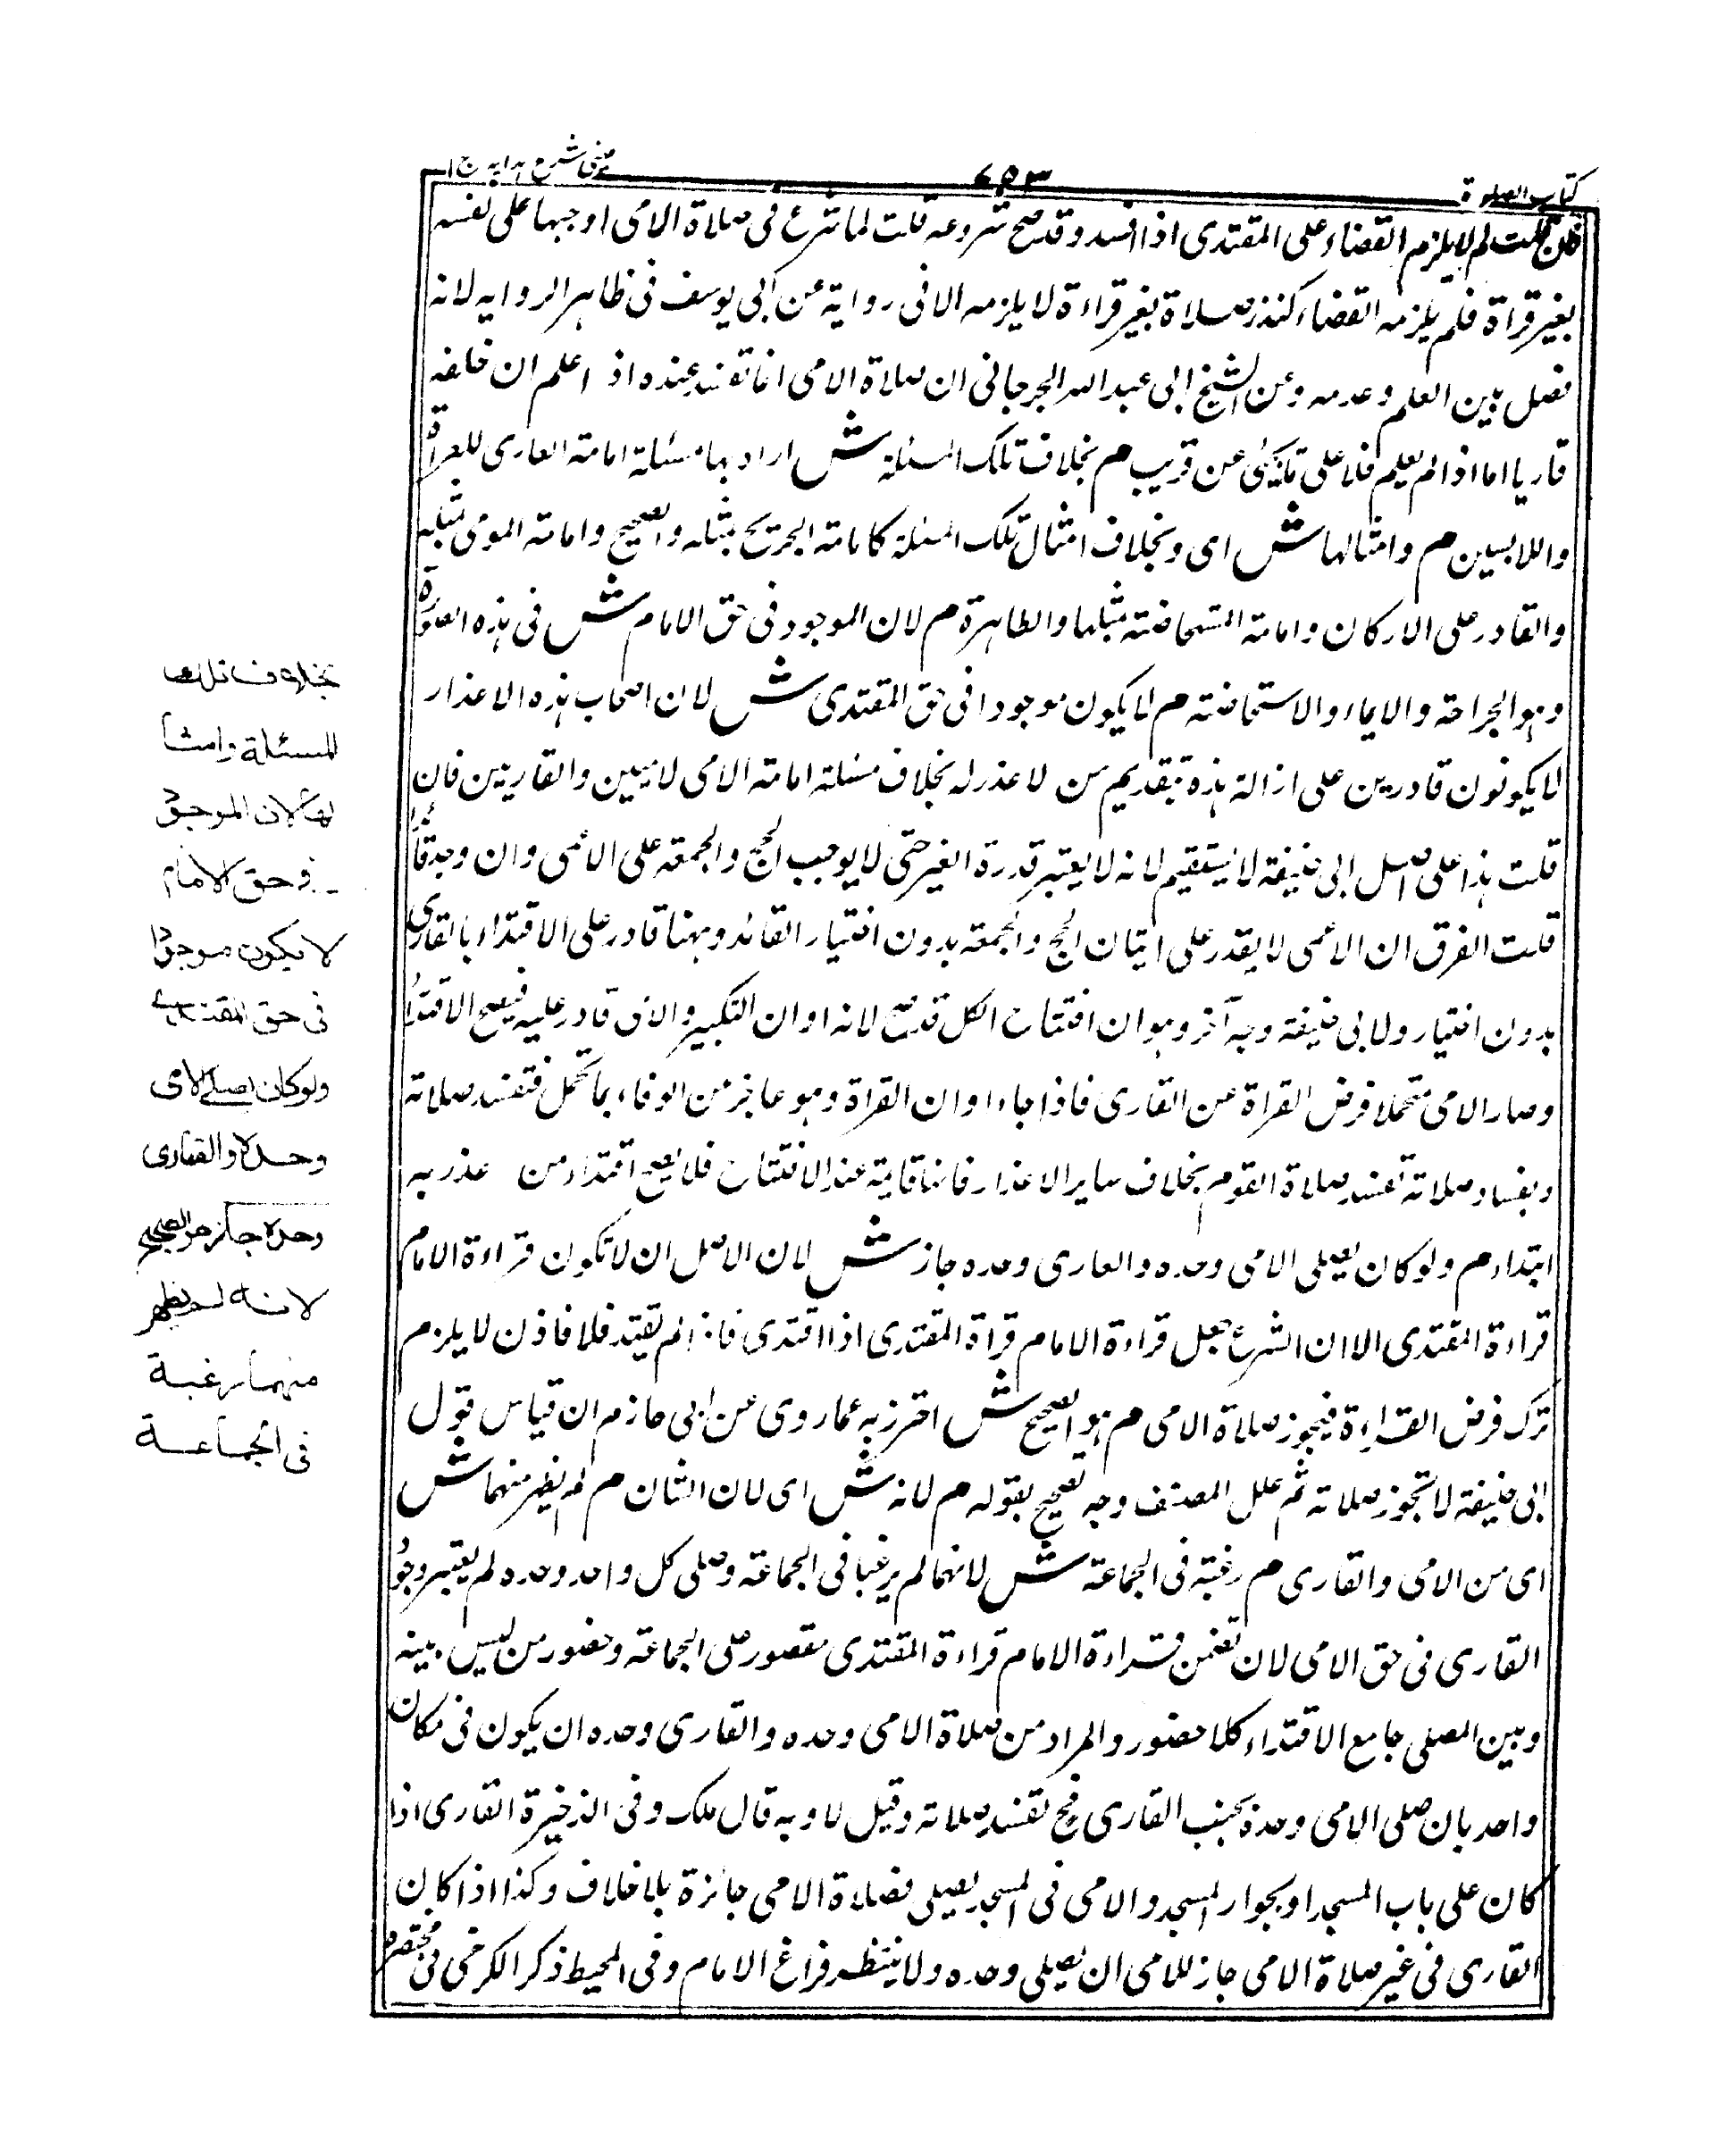 كتاب الصلوة
٧٥٣
عينى شرح هدايه ج ا
فان قلت لم لا يلزم القضاء على المقتدى اذا افسد وقد صح شروعه قلت لما شرع فى صلاة الامى اوجبها على نفسه
بغير قراة فلم يلزمه القضاء كنذر صلاة بغير قراءة لا يلزمه الا فى رواية عن ابى يوسف فى ظاهر الروايه لانه
فصل بين العلم وعدمه وعن الشيخ ابى عبد الله الجرجانى ان صلاة الامى انما تفسد عنده اذ اعلم ان خلفه
قاريا اما اذا لم يعلم فلا على ما يجئ عن قريب م بخلاف تلك المسئلة ش اراد بها مسئلة امامة العارى للعراة
واللابسين م وامثالها ش اى وبخلاف امثال تلك المسئلة كامامة الجريح بمثله والصحيح وامامة المومى بمثله
والقادر على الاركان وامامة المستحاضته بمثلها والطاهرة م لان الموجود فى حق الامام ش فى هذه الصورة
وهو الجراحة والايماء والاستحاضته م لا يكون موجودا فى حق المقتدى ش لان اصحاب هذه الاعذار
لا يكونون قادرين على ازالة هذه بتقديم من لا عذر له بخلاف مسئلة امامة الامى لاميين والقاريين فان
قلت هذا على اصل ابى حنيفة لا يستقيم لانه لا يعتبر قدرة الغير حتى لا يوجب الحج والجمعة على الاعمى وان وجد قائدا
قلت الفرق ان الاعمى لا يقدر على اتيان الحج والجمعة بدون اختيار القائد وههنا قادر على الاقتداء بالقارى
بدون اختيار ولابى حنيفة وجه آخر وهو ان افتتاح الكل قد صح لانه اوان التكبير والامى قادر عليه فيصح الاقتداء
وصار الامى متحملا فرض القراة عن القارى فاذا جاء اوان القراة وهو عاجز عن الوفاء بما تحمل فتفسد صلاته
وبفساد صلاته تفسد صلاة القوم بخلاف ساير الاعذار فانها قايمة عند الافتتاح فلا يصح اقتداء من عذر به
ابتداء م ولو كان يصلى الامى وحده والعارى وحده جاز ش لان الاصل ان لا تكون قراءة الامام
قراءة المقتدى الا ان الشرع جعل قراءة الامام قراة المقتدى اذا اقتدى فاذا لم يقتد فلا فاذن لا يلزم
ترك فرض القراءة فيجوز صلاة الامى م هو الصحيح ش احترز به عما روى عن ابى حازم ان قياس قول
ابى حنيفة لا تجوز صلاته ثم علل المصنف وجه تصحيح بقوله م لانه ش اى لان الشان م لم يظهر منهما ش
اى من الامى والقارى م رغبته فى الجماعة ش لانهما لم يرغبا فى الجماعة وصلى كل واحد وحده لم يعتبر وجود
القارى فى حق الامى لان تضمن قراءة الامام قراءة المقتدى مقصور على الجماعة وحضور من ليس بينه
وبين المصلى جامع الاقتداء كلا حضور والمراد من صلاة الامى وحده والقارى وحده ان يكون فى مكان
واحد بان صلى الامى وحدة بجنب القارى فح تفسد صلاته وقيل لا وبه قال ملك وفى الذخيرة القارى اذا
كان على باب المسجد او بجوار المسجد والامى فى المسجد يصلى فصلاة الامى جائزة بلا خلاف وكذا اذا كان
القارى فى غير صلاة الامى جاز للامى ان يصلى وحده ولا ينتظر فراغ الامام وفى المحيط ذكر الكرخى فى مختصره
بخلاف تلك
المسئلة وامثا
لها لان الموجود
فى حق الامام
لا يكون موجودا
فى حق المقتدى
ولو كان يصلى الامى
وحده والقارى
وحده جاز هو الصحيح
لانه لم يظهر
منهما رغبة
فى الجماعة